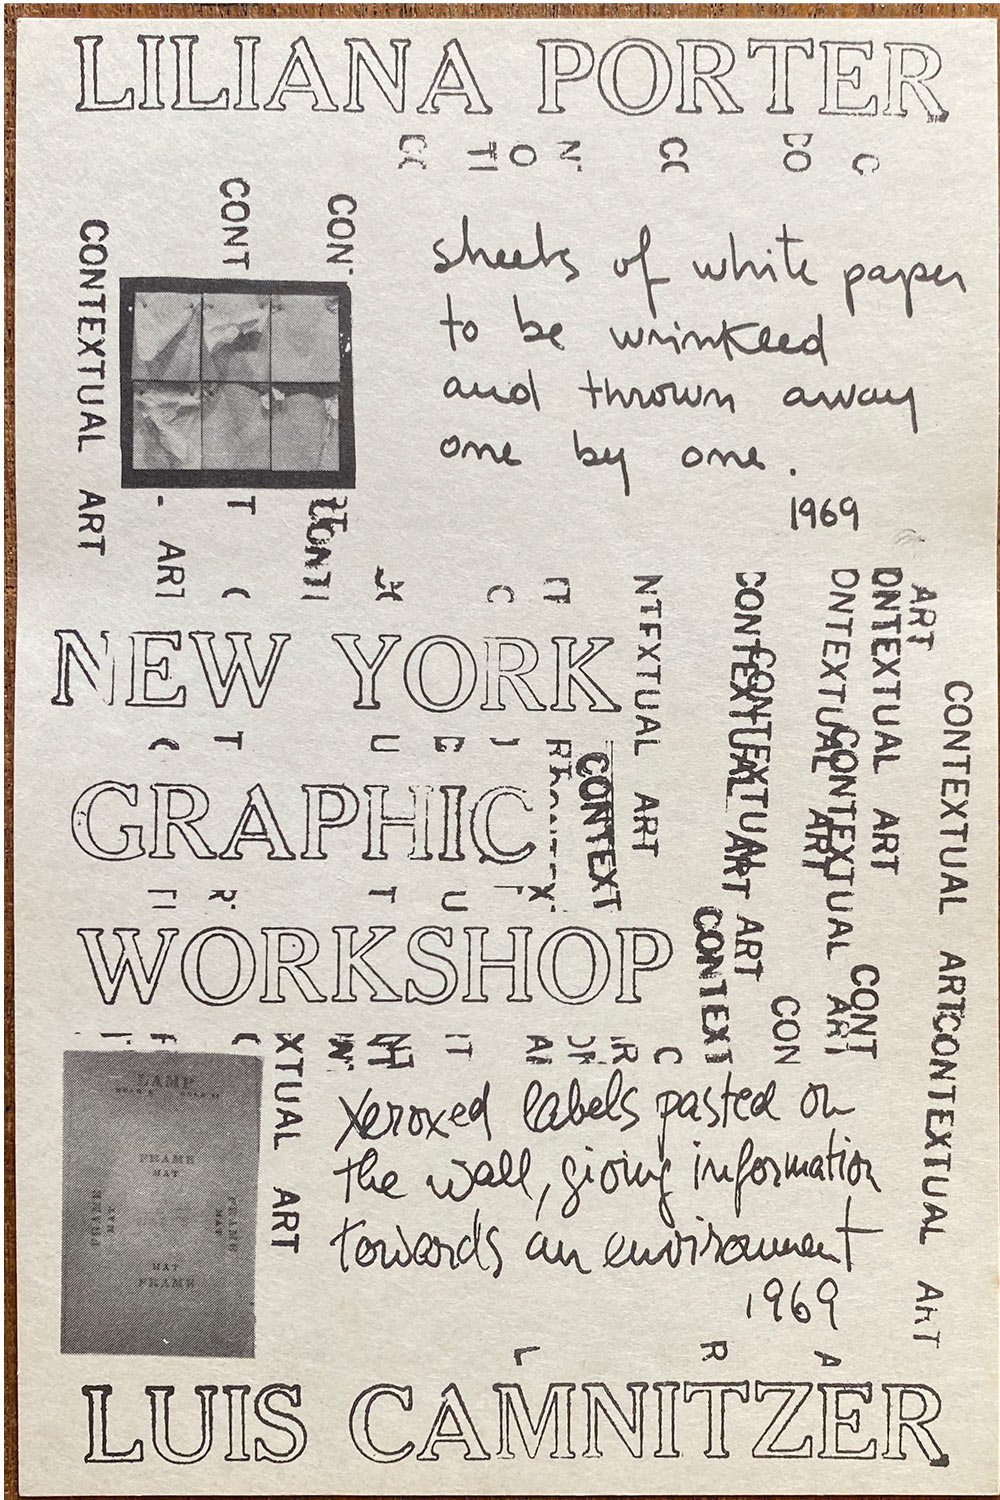 LILIANA PORTER
CONT
CON
CONTEXTUAL ART
sheets of white paper
to be wrinkeed
and thrown away
one by one.
1969
ART
NEW YORK
NTEXTUAL ART
CONTEXTUAL ART
CONTEXTUAL ART
ONTEXTUAL ART
CONTEXTUAL ART
ONTEXTUAL ART
ART
CONTEXTUAL ART
GRAPHIC
CONTEXT
WORKSHOP
CONTEXT
CON
CONT
CONTEXTUAL ART
XTUAL ART
LAMP
FRAME
MAT
FRAME
MAT
FRAME
MAT
MAT
FRAME
xeroxed labels pasted on
the wall, giving information
towards an environment
1969
L R A
LUIS CAMNITZER